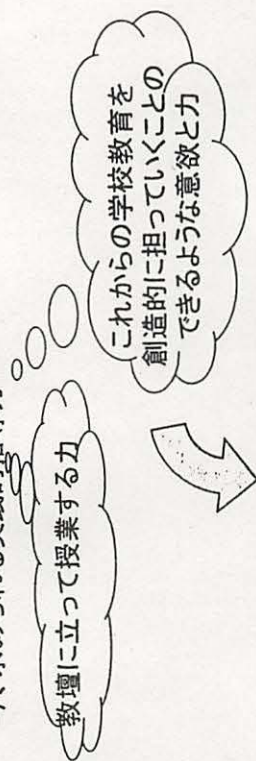 教壇に立って授業する力
これからの学校教育を
創造的に担っていくことの
できるような意欲と力